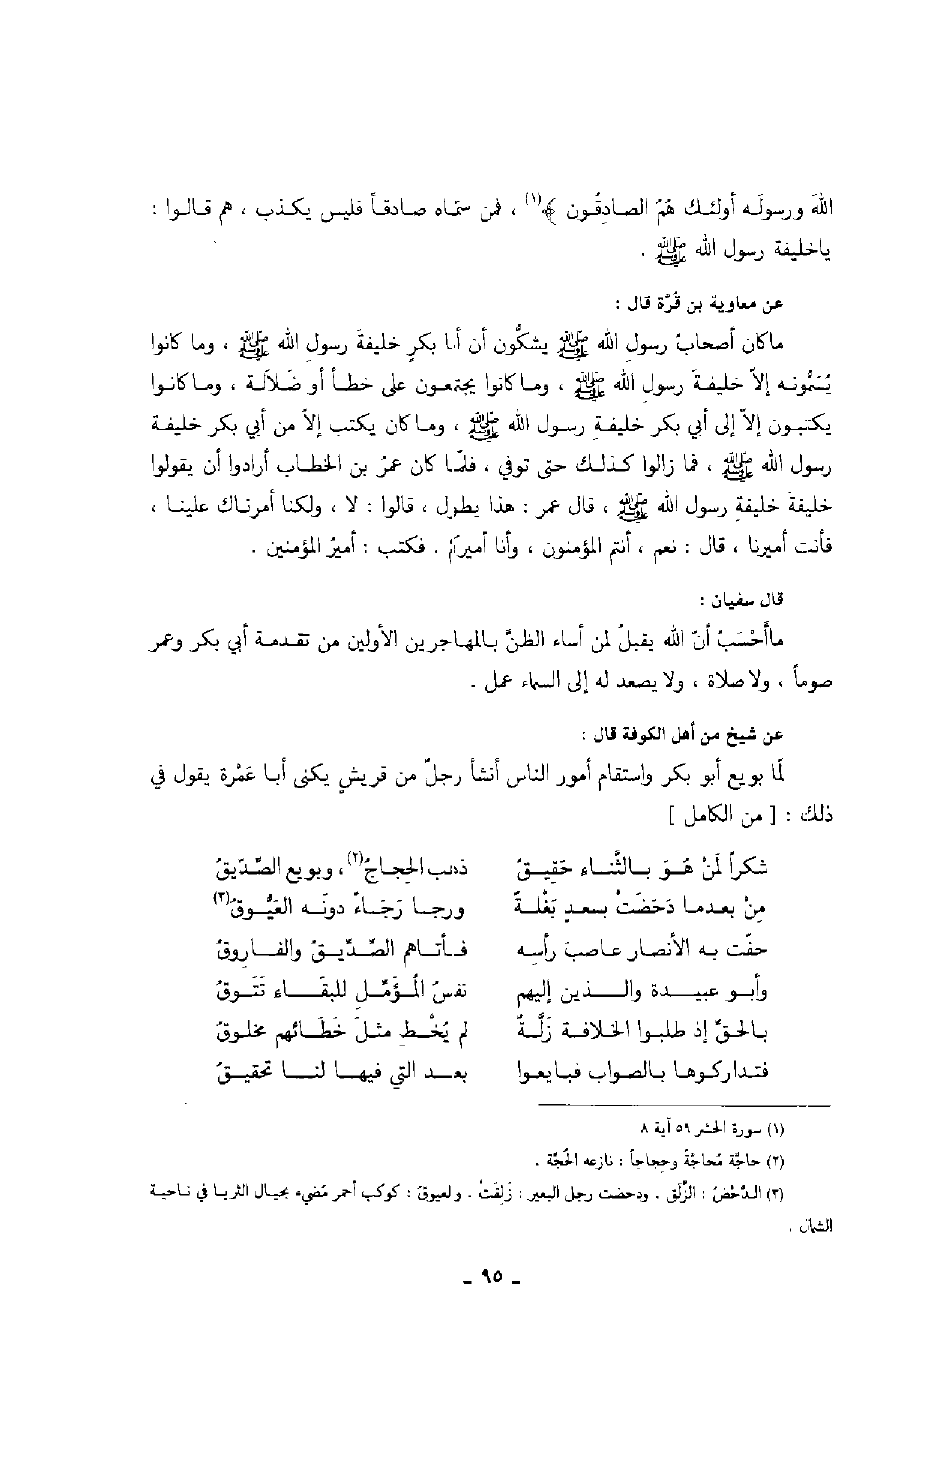 اللهَ ورسولَه أولئك هُمُ الصادِقُون ﴾(١) ، فمن سمّاه صادقاً فليس يكذب ، هم قالوا :
ياخليفة رسول الله ﷺ .
عن معاوية بن قُرّة قال :
ماكان أصحابُ رسولِ الله ﷺ يشكُّون أن أبا بكرٍ خليفةَ رسولِ الله ﷺ ، وما كانوا
يُسَمُّونه إلاّ خليفةَ رسولِ الله ﷺ ، وما كانوا يجتمعون على خطأ أو ضَلالة ، وما كانوا
يكتبون إلاّ إلى أبي بكر خليفةِ رسول الله ﷺ ، وما كان يكتب إلاّ من أبي بكر خليفة
رسول الله ﷺ ، فما زالوا كذلك حتى توفي ، فلمّا كان عمرُ بن الخطاب أرادوا أن يقولوا
خليفةَ خليفةِ رسولِ الله ﷺ ، قال عمر : هذا يطول ، قالوا : لا ، ولكنا أمرناك علينا ،
فأنت أميرنا ، قال : نعم ، أنتم المؤمنون ، وأنا أميركم . فكتب : أميرُ المؤمنين .
قال سفيان :
ماأَحْسَبُ أنّ الله يقبلُ لمن أساء الظنَّ بالمهاجرين الأولين من تقدمة أبي بكر وعمر
صوماً ، ولا صلاة ، ولا يصعد له إلى السماء عمل .
عن شيخ من أهل الكوفة قال :
لمّا بويع أبو بكر واستقام أمور الناس أنشأ رجلٌ من قريشٍ يكنى أبا عَمْرة يقول في
ذلك : [ من الكامل ]
شكراً لمَنْ هُوَ بالثَّناء حَقِيقُ ذهب الحِجاجُ(٢) ، وبويع الصِّدّيقُ
مِنْ بعدما دَحَضَتْ بسعدٍ بَغْلةٌ ورجا رَجَاءً دونَه العَيُّوقُ(٣)
حفّت به الأنصار عاصبَ رأسِه فأتاهم الصِّدّيقُ والفاروقُ
وأبو عبيدة والذين إليهم نفسُ المُؤَمِّل للبقاء تَتُوقُ
بالحقّ إذ طلبوا الخلافة زَلَّةٌ لم يُخْطِ مثلَ خَطَائهم مخلوقُ
فتداركوها بالصواب فبايعوا بعد التي فيها لنا تحقيقُ
(١) سورة الحشر ٥٩ آية ٨
(٢) حاجَّهُ مُحاجَّةً وحِجاجاً : نازعه الحُجَّة .
(٣) الدَّحْضُ : الزَّلَق . ودحضت رجل البعير : زَلِقَتْ . ولعيوقُ : كوكب أحمر مُضيء بحيال الثريا في ناحية
الشمال .
ـ ٩٥ ـ